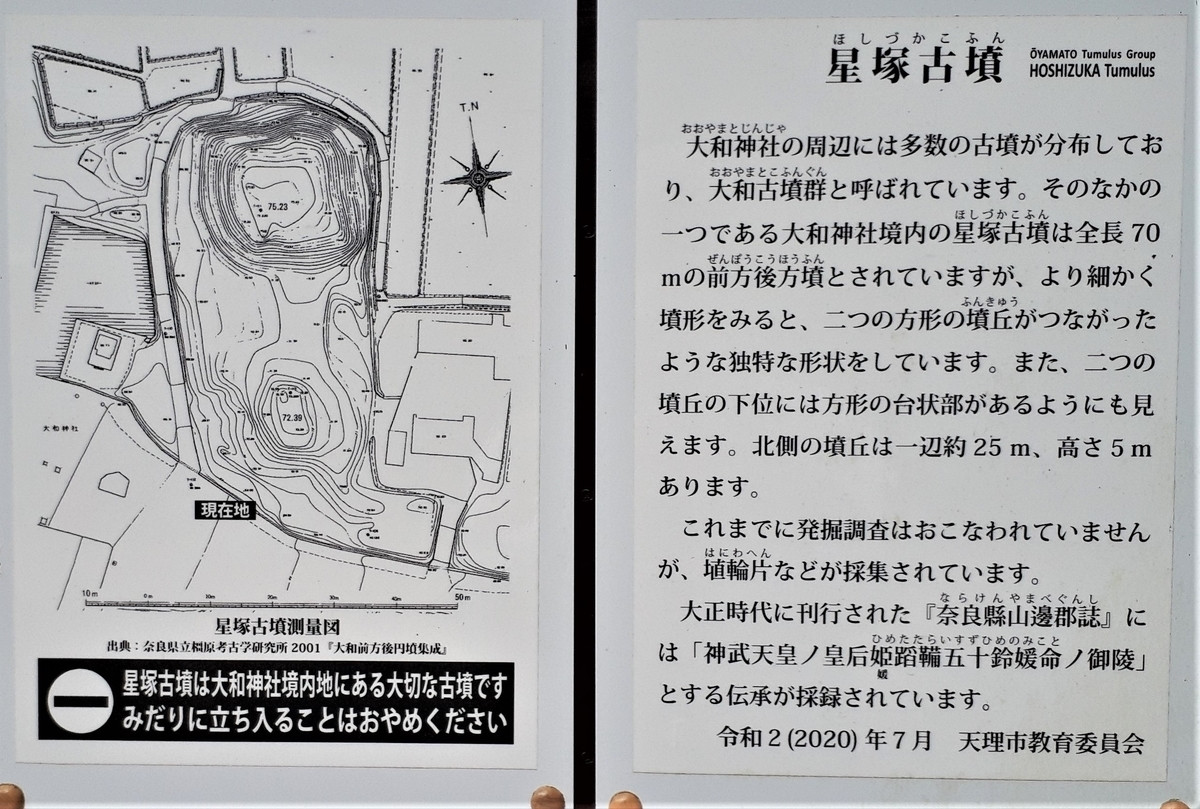 T.N
75.23
72.39
大和神社
現在地
10m 0m 10m 20m 30m 40m 50m
星塚古墳測量図
出典:奈良県立橿原考古学研究所 2001『大和前方後円墳集成』
星塚古墳は大和神社境内地にある大切な古墳です
みだりに立ち入ることはおやめください
ほしづかこふん
星塚古墳
ŌYAMATO Tumulus Group
HOSHIZUKA Tumulus
おおやまとじんじゃ
大和神社の周辺には多数の古墳が分布してお
おおやまとこふんぐん
り、大和古墳群と呼ばれています。そのなかの
ほしづかこふん
一つである大和神社境内の星塚古墳は全長 70
ぜんぽうこうほうふん
mの前方後方墳とされていますが、より細かく
ふんきゅう
墳形をみると、二つの方形の墳丘がつながった
ような独特な形状をしています。また、二つの
墳丘の下位には方形の台状部があるようにも見
えます。北側の墳丘は一辺約 25 m、高さ 5 m
あります。
これまでに発掘調査はおこなわれていません
はにわへん
が、埴輪片などが採集されています。
ならけんやまべぐんし
大正時代に刊行された『奈良縣山邊郡誌』に
ひめたたらいすずひめのみこと
は「神武天皇ノ皇后姫蹈鞴五十鈴媛命ノ御陵」
媛
とする伝承が採録されています。
令和 2 (2020) 年 7 月 天理市教育委員会